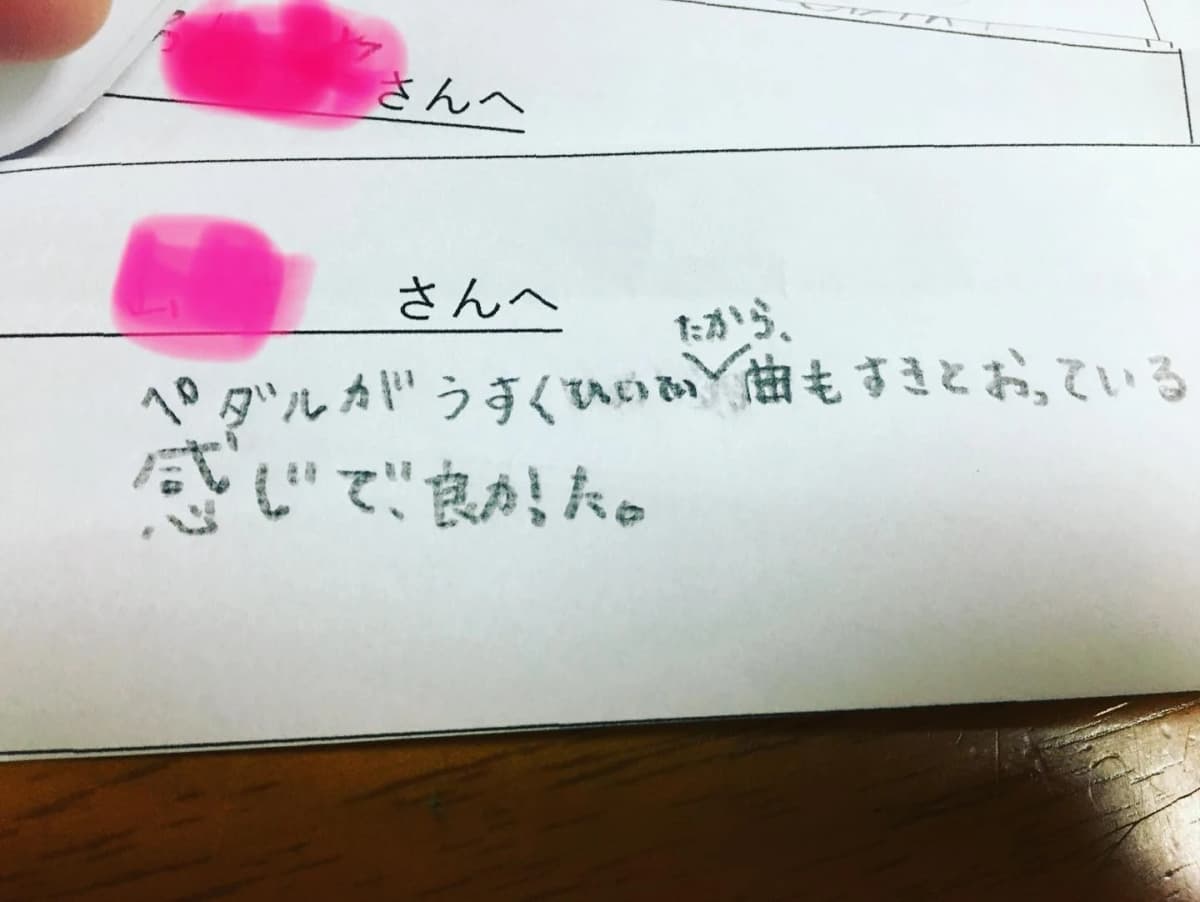 さんへ
さんへ
たから、
ペダルがうすく 曲もすきとおっている
感じで、良かった。